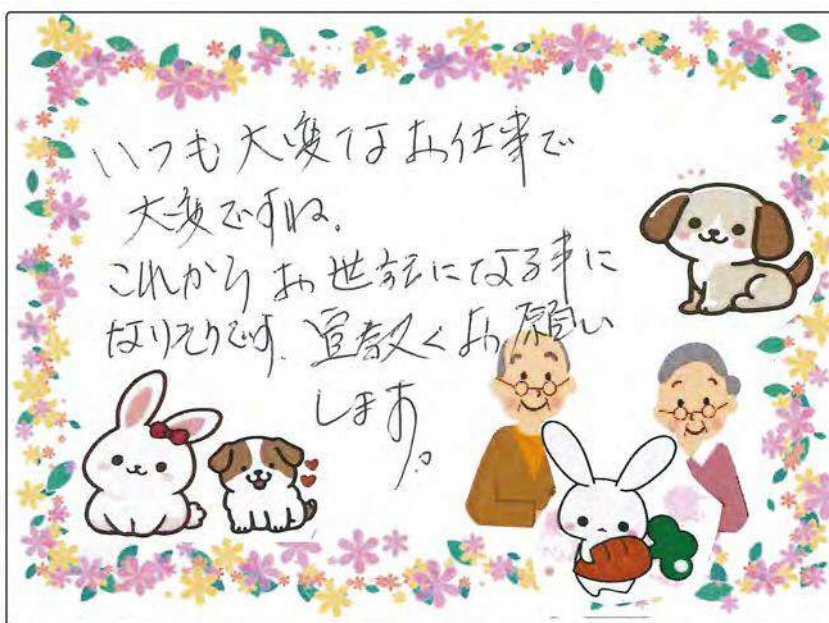 いつも大変なお仕事で
大変ですね。
これからお世話になる事に
なりそうです。宜敷くお願い
します。